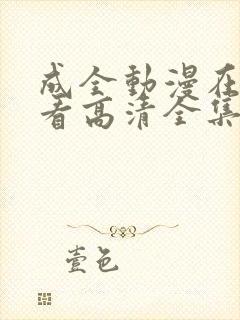 成全動漫在
看高清全集
壹色